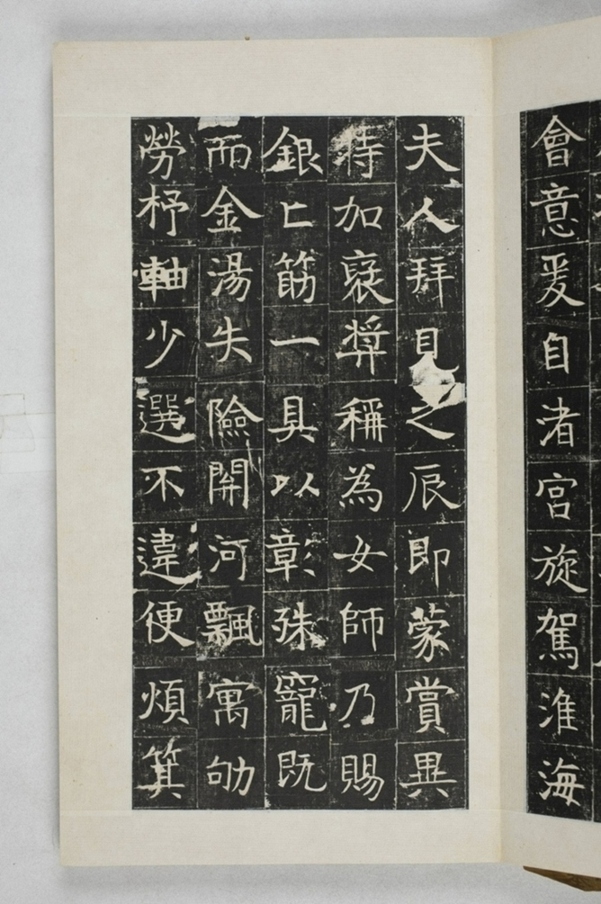 會意爰自渚宮旋駕淮海
夫人拜見之辰即蒙賞異
特加褒獎稱為女師乃賜
銀匕筋一具以彰殊寵既
而金湯失險關河飄寓劬
勞杼軸少選不違便煩箕